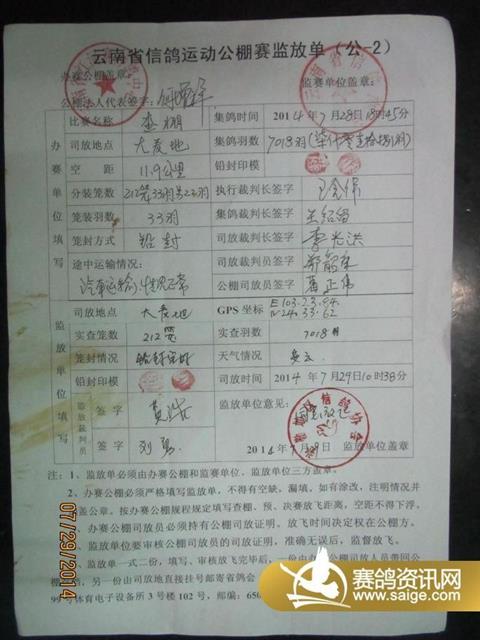 云南省信鸽运动公棚赛监放单（公-2）
办赛公棚盖章： 监赛单位盖章：
公棚法人代表签字：
办赛单位填写
比赛名称 查棚 集鸽时间 2014年7月28日18时45分
司放地点 大麦地 集鸽羽数 7018羽
空距 119公里 铅封印模
分装笼数 212笼33羽 执行裁判长签字
笼装羽数 33羽 集鸽裁判长签字
笼封方式 铅封 司放裁判长签字 李光洪
途中运输情况： 司放裁判员签字
汽车运输，情况正常 公棚司放员签字
监放单位填写
司放地点 大麦地 GPS坐标 E103.23.84 N24.33.62
实查笼数 212笼 实查羽数 7018羽
笼封情况 铅封完好 天气情况 多云
铅封印模 司放时间 2014年7月29日10时38分
监放裁判员 签字 黄浩 监放单位意见：
签字 刘勇 2014年7月29日 监放单位盖章
注：1、监放单必须由办赛公棚和监赛单位、监放单位三方盖章。
2、办赛公棚必须严格填写监放单，不得有空缺、漏填。如有涂改，注明情况并
盖公章。按办赛公棚规程规定填写查棚、预、决赛放飞距离，空距不得下浮。
办赛公棚司放员必须持有公棚司放证明。放飞时间决定权在公棚方。
监放单位要审核公棚司放员的司放证明，准确无误后，监督放飞。
监放单一式二份，填写、审核放飞完毕后，一份由公棚司放人员带回公
另一份由司放地直接挂号邮寄省鸽会
99号体育电子设备所3号楼102号，邮编：650
07/29/2014
赛鸽资讯网
www.saige.com